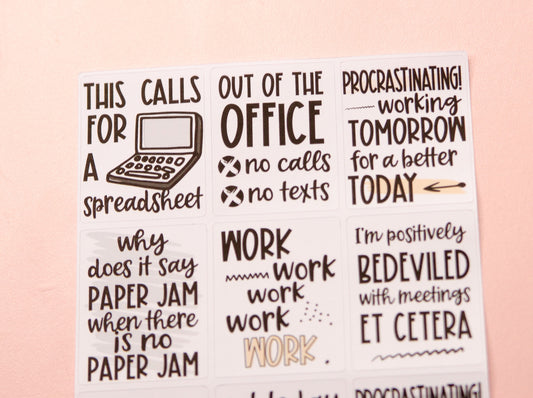 THIS CALLS
FOR
A
spreadsheet
OUT OF THE
OFFICE
no calls
no texts
PROCRASTINATING!
working
TOMORROW
for a better
TODAY
why
does it say
PAPER JAM
when there
is no
PAPER JAM
WORK
work
work
work
WORK.
I'm positively
BEDEVILED
with meetings
ET CETERA
PROCRASTINATING!